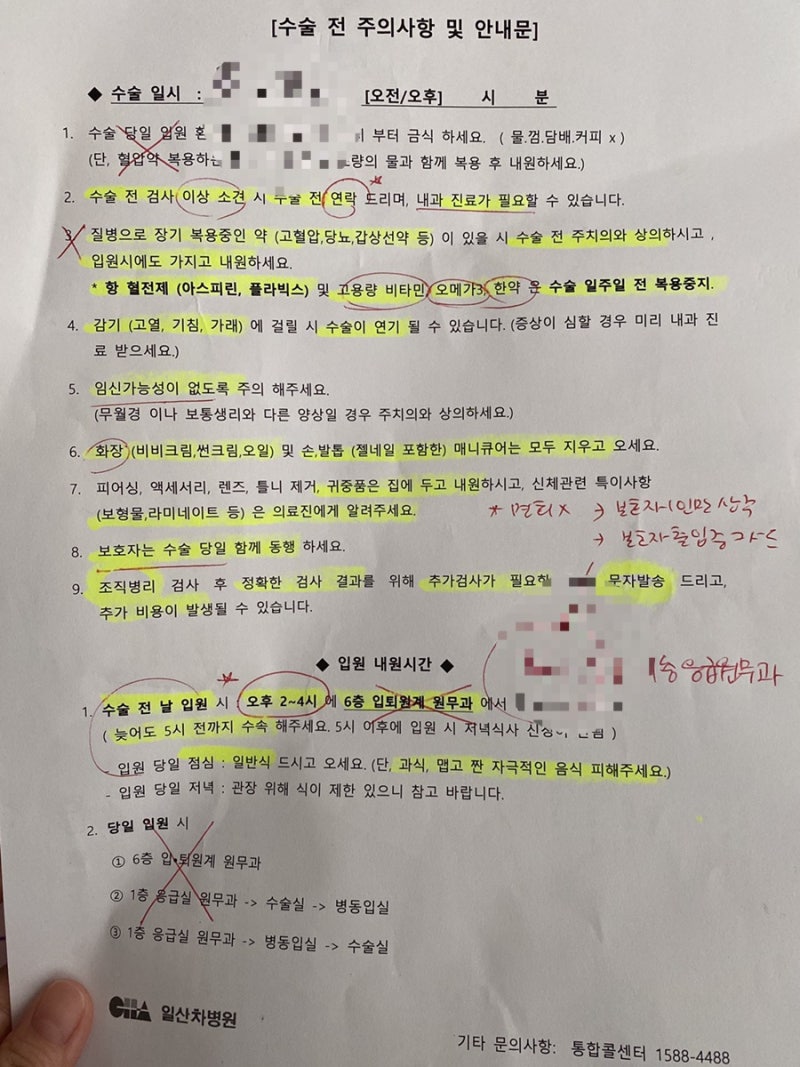 [수술 전 주의사항 및 안내문]
◆ 수술 일시 : [오전/오후] 시 분
1. 수술 당일 입원 환 부터 금식 하세요. ( 물.껌.담배.커피 x )
(단, 혈압약 복용하는 량의 물과 함께 복용 후 내원하세요.)
2. 수술 전 검사 이상 소견 시 수술 전 연락 드리며, 내과 진료가 필요할 수 있습니다.
3. 질병으로 장기 복용중인 약 (고혈압,당뇨,갑상선약 등) 이 있을 시 수술 전 주치의와 상의하시고 ,
입원시에도 가지고 내원하세요.
* 항 혈전제 (아스피린, 플라빅스) 및 고용량 비타민, 오메가3, 한약 은 수술 일주일 전 복용중지.
4. 감기 (고열, 기침, 가래) 에 걸릴 시 수술이 연기 될 수 있습니다. (증상이 심할 경우 미리 내과 진
료 받으세요.)
5. 임신가능성이 없도록 주의 해주세요.
(무월경 이나 보통생리와 다른 양상일 경우 주치의와 상의하세요.)
6. 화장 (비비크림,썬크림,오일) 및 손,발톱 (젤네일 포함한) 매니큐어는 모두 지우고 오세요.
7. 피어싱, 액세서리, 렌즈, 틀니 제거, 귀중품은 집에 두고 내원하시고, 신체관련 특이사항
(보형물,라미네이트 등) 은 의료진에게 알려주세요.
* 면회 x → 보호자 1인만 상주
→ 보호자출입증 카드
8. 보호자는 수술 당일 함께 동행 하세요.
9. 조직병리 검사 후 정확한 검사 결과를 위해 추가검사가 필요할 문자발송 드리고,
추가 비용이 발생될 수 있습니다.
◆ 입원 내원시간 ◆
1층 응급원무과
1. 수술 전 날 입원 시 : 오후 2~4시 에 6층 입퇴원계 원무과 에서
( 늦어도 5시 전까지 수속 해주세요. 5시 이후에 입원 시 저녁식사 )
- 입원 당일 점심 : 일반식 드시고 오세요. (단, 과식, 맵고 짠 자극적인 음식 피해주세요.)
- 입원 당일 저녁 : 관장 위해 식이 제한 있으니 참고 바랍니다.
2. 당일 입원 시
① 6층 입·퇴원계 원무과
② 1층 응급실 원무과 -> 수술실 -> 병동입실
③ 1층 응급실 원무과 -> 병동입실 -> 수술실
CHA 일산차병원
기타 문의사항: 통합콜센터 1588-4488